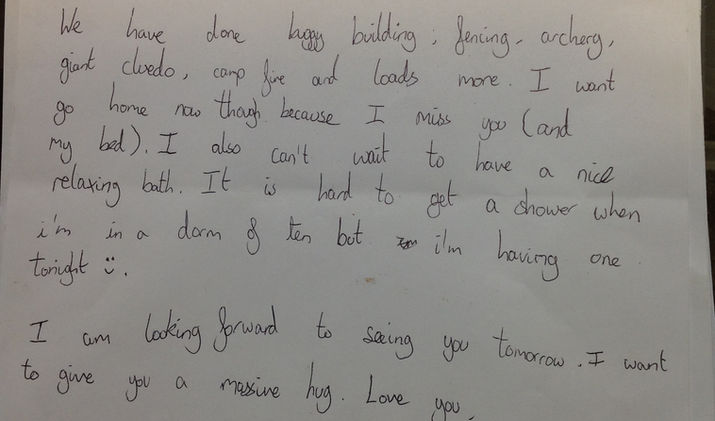 We have done buggy building, fencing, archery,
giant cluedo, camp fire and loads more. I want
go home now though because I miss you (and
my bed). I also can't wait to have a nice
relaxing bath. It is hard to get a shower when
i'm in a dorm of ten but i'm having one
tonight :).
I am looking forward to seeing you tomorrow. I want
to give you a massive hug. Love you.